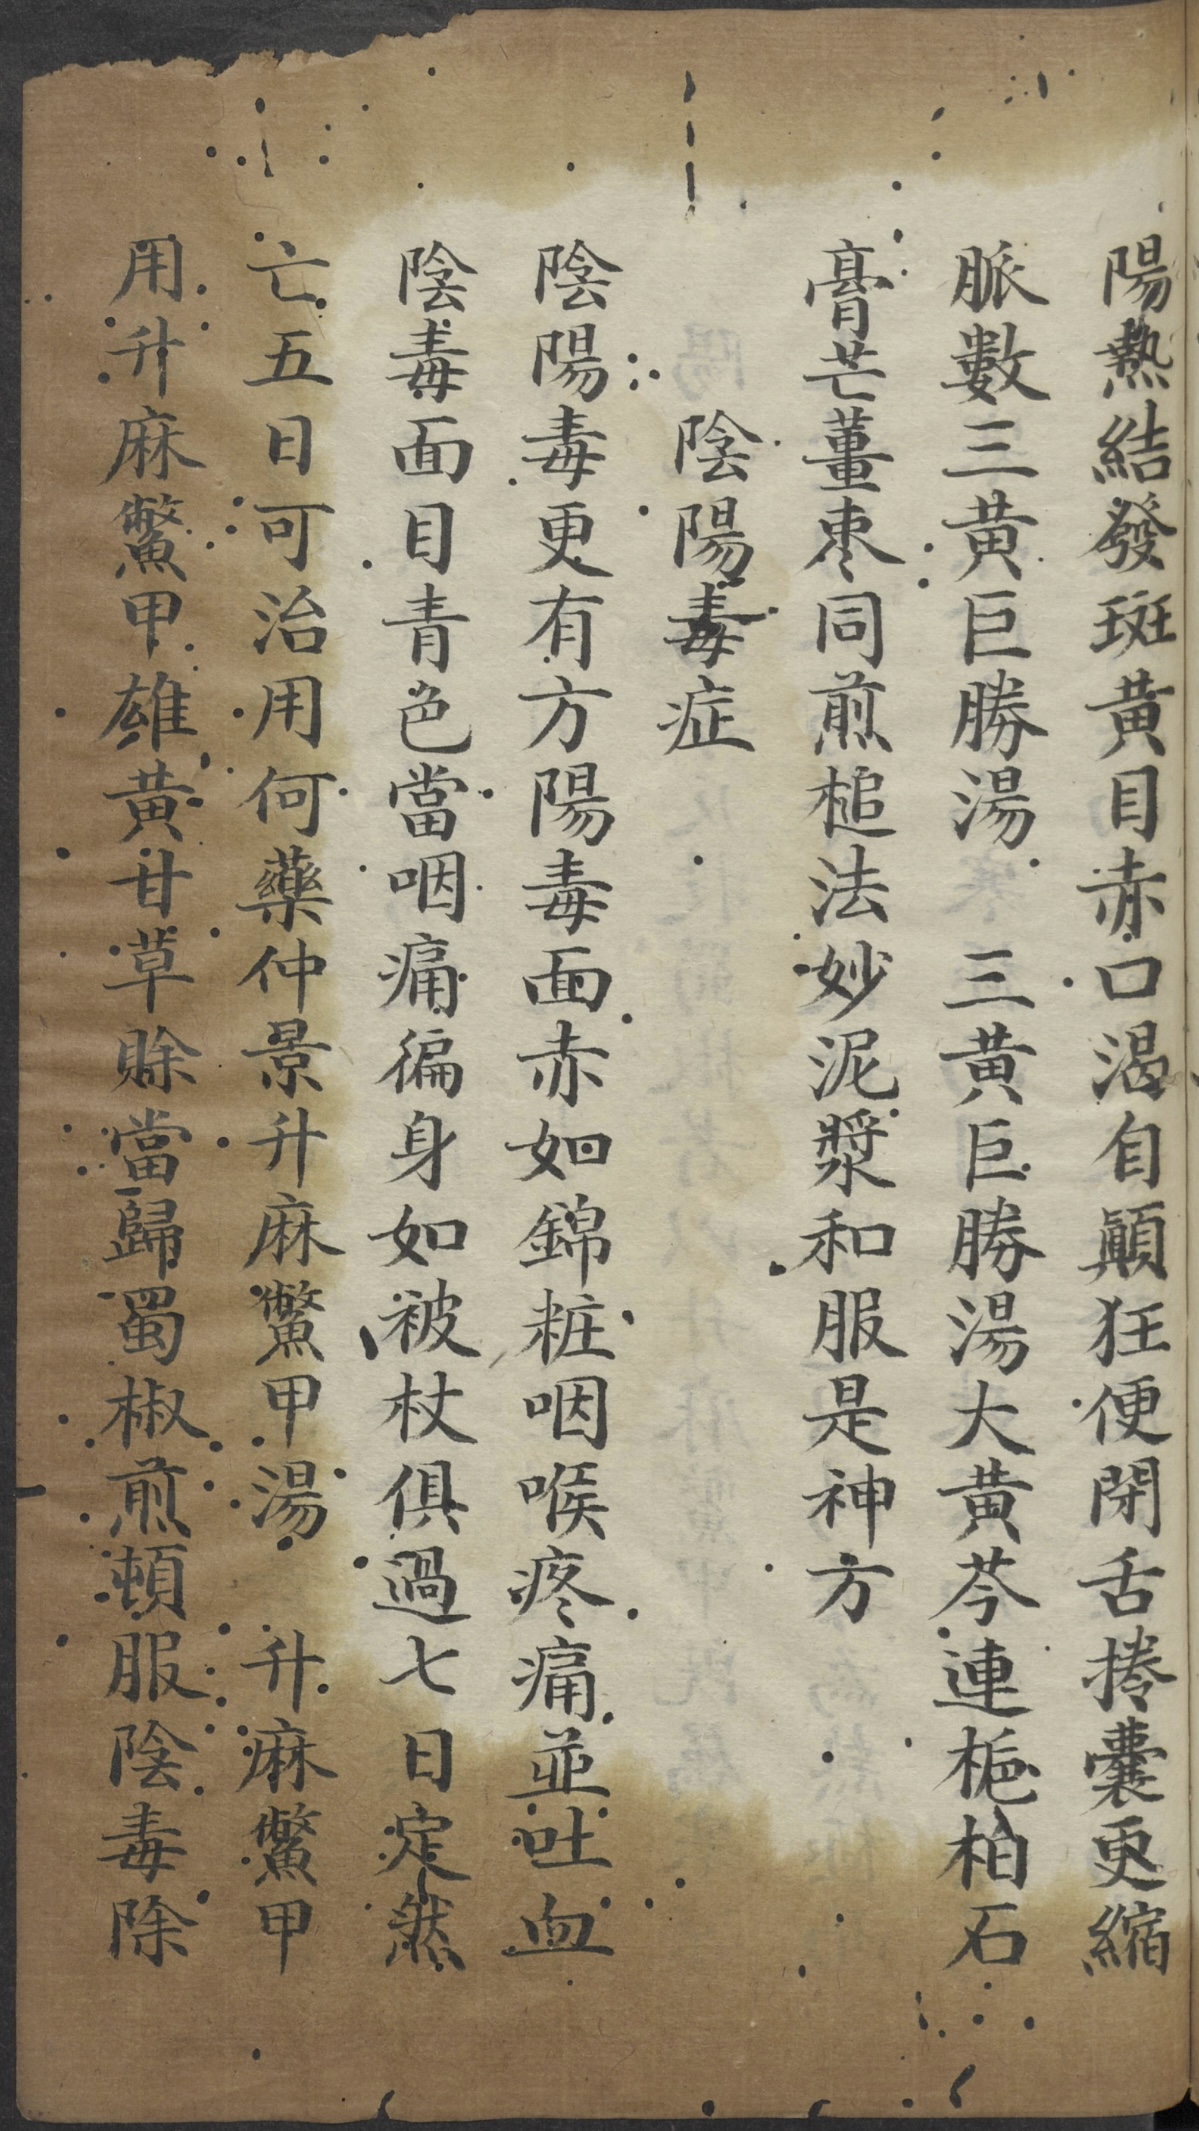 陽熱結發斑黃目赤口渴自顛狂便閉舌捲囊更縮
脈數三黃巨勝湯　三黃巨勝湯大黃芩連梔柏石
膏芒薑棗同煎槌法妙泥漿和服是神方
陰陽毒症
陰陽毒更有方陽毒面赤如錦粧咽喉疼痛並吐血
陰毒面目青色當咽痛徧身如被杖俱過七日定然
亡五日可治用何藥仲景升麻鱉甲湯　升麻鱉甲
用升麻鱉甲雄黃甘草除當歸蜀椒煎頓服陰毒除